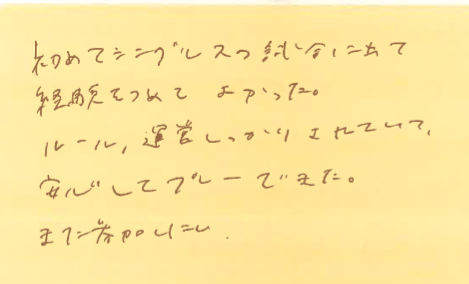 初めてシングルスの試合に出て
経験をつめて よかった。
ルール, 運営しっかりされていて,
安心してプレーできた。
また参加したい.